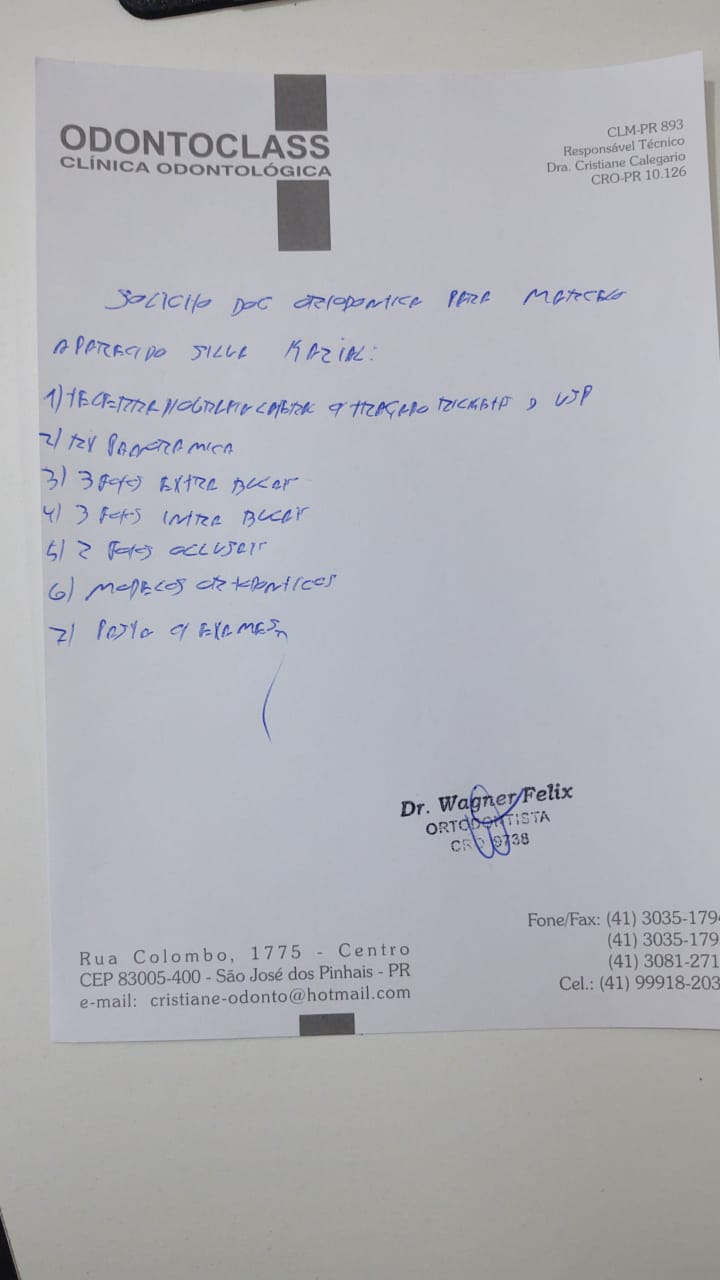 ODONTOCLASS
CLÍNICA ODONTOLÓGICA
CLM-PR 893
Responsável Técnico
Dra. Cristiane Calegario
CRO-PR 10.126
SOLICITO DOC ORTODONTICA PARA MARCELO
APARECIDO SILVA
1) TRAÇADO USP
2) RX PANORAMICA
3) 3 FOTOS EXTRA BUCAIS
4) 3 FOTOS INTRA BUCAIS
5) 2 FOTOS OCLUSAIS
6) MODELOS ORTODONTICOS
7) PASTA C/ EXAMES
Dr. Wagner Felix
ORTODONTISTA
CRO 9738
Rua Colombo, 1775 - Centro
CEP 83005-400 - São José dos Pinhais - PR
e-mail: cristiane-odonto@hotmail.com
Fone/Fax: (41) 3035-179
(41) 3035-179
(41) 3081-271
Cel.: (41) 99918-203